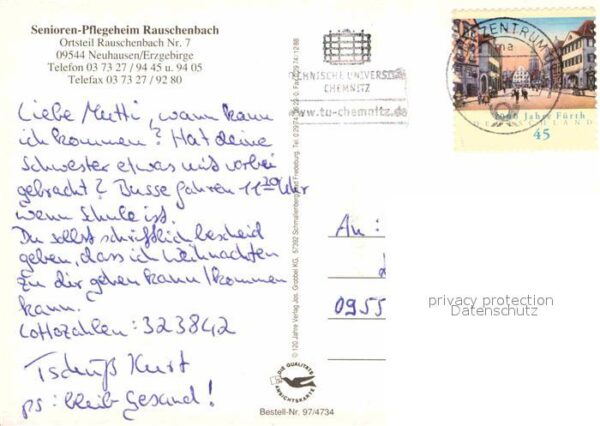 Senioren-Pflegeheim Rauschenbach
Ortsteil Rauschenbach Nr. 7
09544 Neuhausen/Erzgebirge
Telefon 03 73 27 / 94 45 u. 94 05
Telefax 03 73 27 / 92 80
Liebe Mutti, wann kann
ich kommen? Hat deine
Schwester etwas mit vorbei
gebracht? Busse fahren 11 20 Uhr
wenn Schule ist.
Du sollst schriftlich bescheid
geben, dass ich Weihnachten
zu dir gehen kann/kommen
kann.
Lottozahlen: 323842
Tschüß Kurt
ps: bleib Gesund!
TECHNISCHE UNIVERSITÄT
CHEMNITZ
www.tu-chemnitz.de
BRIEFZENTRUM
1000 Jahre Fürth
DEUTSCHLAND
45
An:
0955
privacy protection
Datenschutz
© 120 Jahre Verlag Jos. Grobbel KG, 57392 Schmallenberg
DIE QUALITÄTS
ANSICHTSKARTE
Bestell-Nr. 97/4734